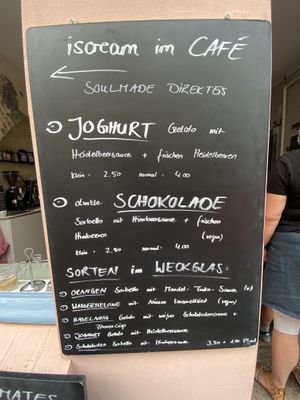 iscream im CAFÉ
SOULMADE DIREKTES
JOGHURT Gelato mit
Heidelbeersauce + frischen Heidelbeeren
Klein : 2.50 normal : 4.00
dunkle SCHOKOLADE
Sorbetto mit Himbeersauce + frischen
Himbeeren (vegan)
Klein : 2.50 normal : 4.00
SORTEN im WECKGLAS:
ORANGEN Sorbetto mit Mandel- Sauce (v)
WASSERMELONE mit Nüssen karamellisiert (vegan)
HASELNUSS Gelato mit weißer Schokoladencreme +
JOGHURT Gelato mit Heidelbeersauce
Schokoladen Sorbetto mit Himbeersauce 3.50 +
MATES